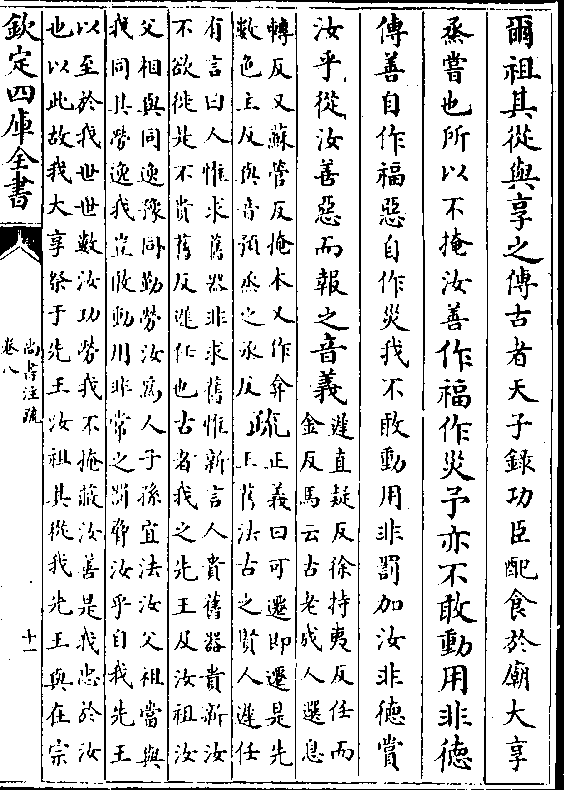 爾祖其從與享之傳古者天子錄功臣配食於廟大享
烝嘗也所以不掩汝善作福作災予亦不敢動用非德
傳善自作福惡自作災我不敢動用非罰加汝非德賞
汝乎從汝善惡而報之音義
遲直疑反徐持夷反任而
金反馬云古老成人選息
轉反又蘇管反掩本又作弇
數色主反與音預烝之承反
疏
正義曰可遷即遷是先
王舊法古之賢人遲任
有言曰人惟求舊器非求舊惟新言人貴舊器貴新汝
不欲徙是不貴舊反遲任也古者我之先王及汝祖汝
父相與同逸豫同勤勞汝為人子孫宜法汝父祖當與
我同其勞逸我豈敢動用非常之罰脅汝乎自我先王
以至於我世世數汝功勞我不掩蔽汝善是我忠於汝
也以此故我大享祭于先王汝祖其從我先王與在宗
欽定四庫全書
尚書注疏
卷八
十一